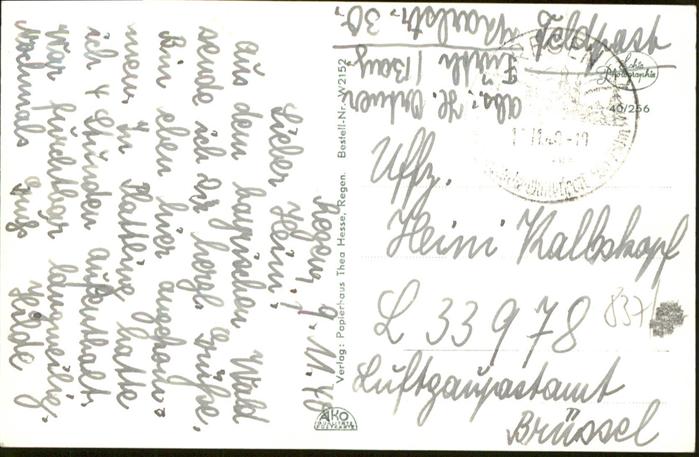 Regen, 9.11.40
Lieber Heini!
Aus dem bayrischen Wald
sende ich Dir herzl. Grüße.
Bin eben hier angekom-
men. In Plattling hatte
ich 4 Stunden Aufenthalt,
war furchtbar langweilig.
Nochmals Gruß Hilde
Verlag: Papierhaus Thea Hesse, Regen. Bestell-Nr. W2152
AKO
QUALITÄTS
POSTKARTE
Feldpost
Abs.: H.
Fürth / Bay.
Karlstr. 30.
Echte
Photographie
40/256
Uffz.
Heini Kalbskopf
L 33978
Luftgaupostamt
Brüssel
837